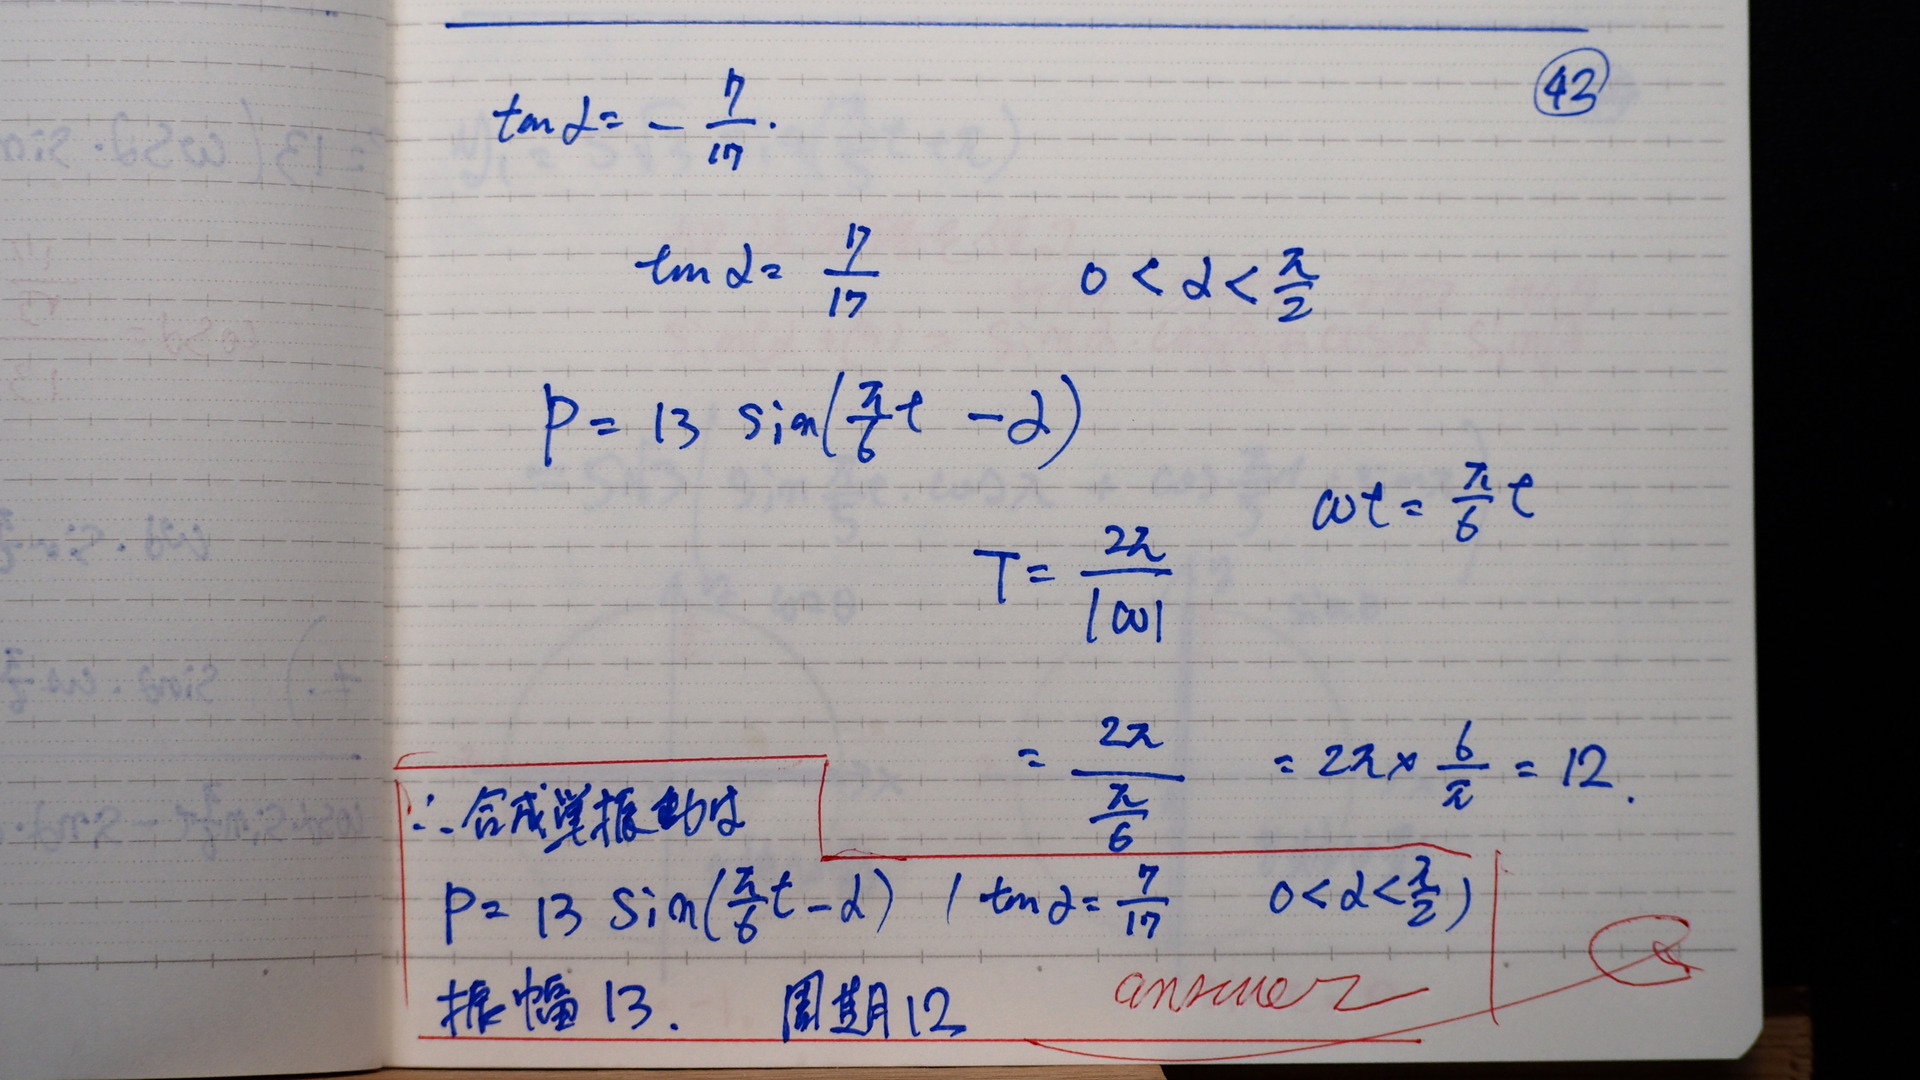 43
tan α = - 7/17.
tan α = 7/17   0 < α < π/2
P = 13 sin(π/6 t - α)
ωt = π/6 t
T = 2π/|ω|
= 2π/(π/6) = 2π × 6/π = 12.
∴ 合成単振動は
P = 13 sin(π/6 t - α) ( tan α = 7/17   0 < α < π/2 )
振幅 13.   周期 12   answer